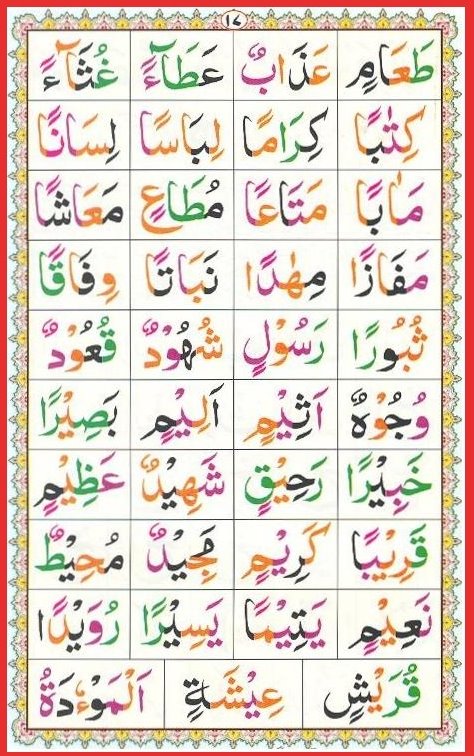 ١٧
طَعَامٍ عَذَابٌ عَطَآءً غُثَآءً
كِتٰبًا كِرَامًا لِبَاسًا لِسَانًا
مَاٰبًا مَتَاعًا مُطَاعٍ مَعَاشًا
مَفَازًا مِهٰدًا نَبَاتًا وِفَاقًا
ثُبُورًا رَسُوْلٍ شُهُوْدٌ قُعُوْدٌ
وُجُوْهٌ اَثِيْمٍ اَلِيْمٍ بَصِيْرًا
خَبِيْرًا رَحِيْقٍ شَهِيْدٌ عَظِيْمٍ
قَرِيْبًا كَرِيْمٍ مَجِيْدٌ مُحِيْطٌ
نَعِيْمٍ يَتِيْمًا يَسِيْرًا رُوَيْدًا
قُرَيْشٍ عِيْشَةٍ اَلْمَوْءٗدَةُ